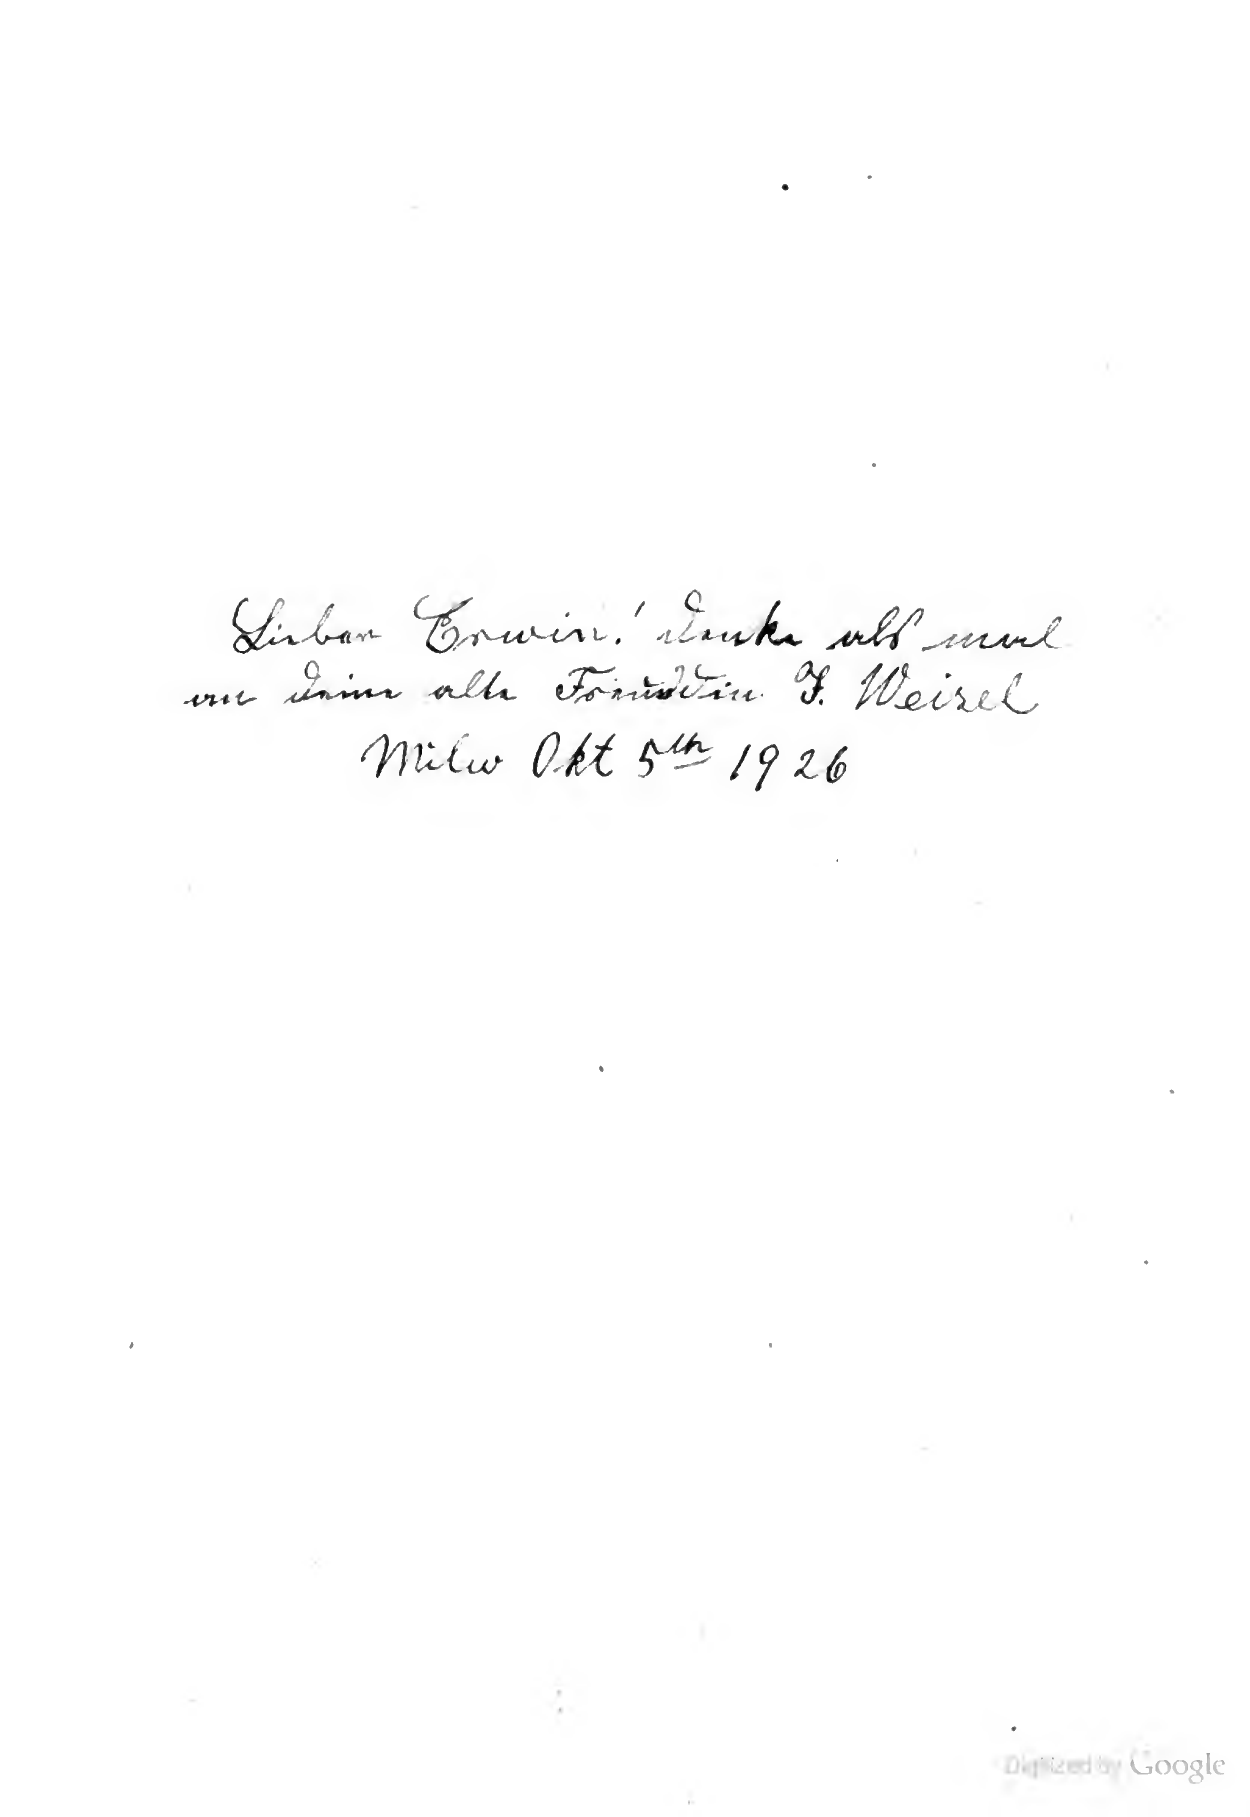 Lieber Erwin! denke als mal
an deine alte Freundin J. Weizel
Milw Okt 5th 1926
Digitized by Google